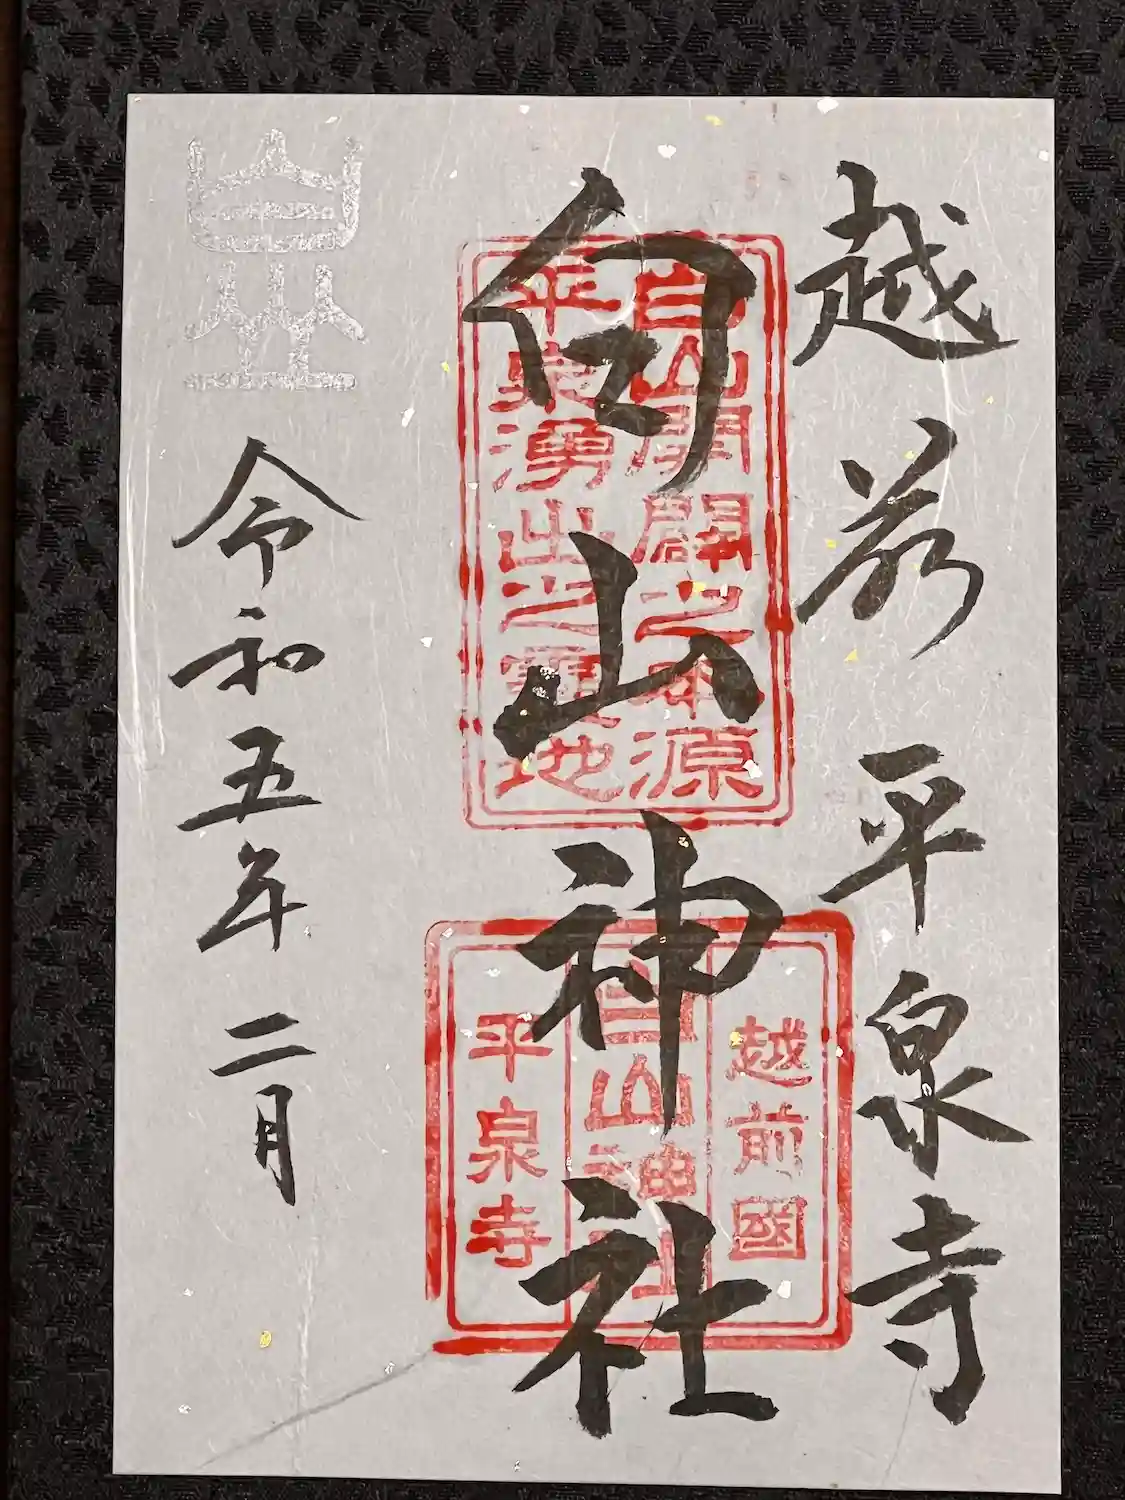 越前平泉寺
白山神社
令和五年二月
白山開闢之本源
平泉湧出之靈地
越前國
白山神社
平泉寺